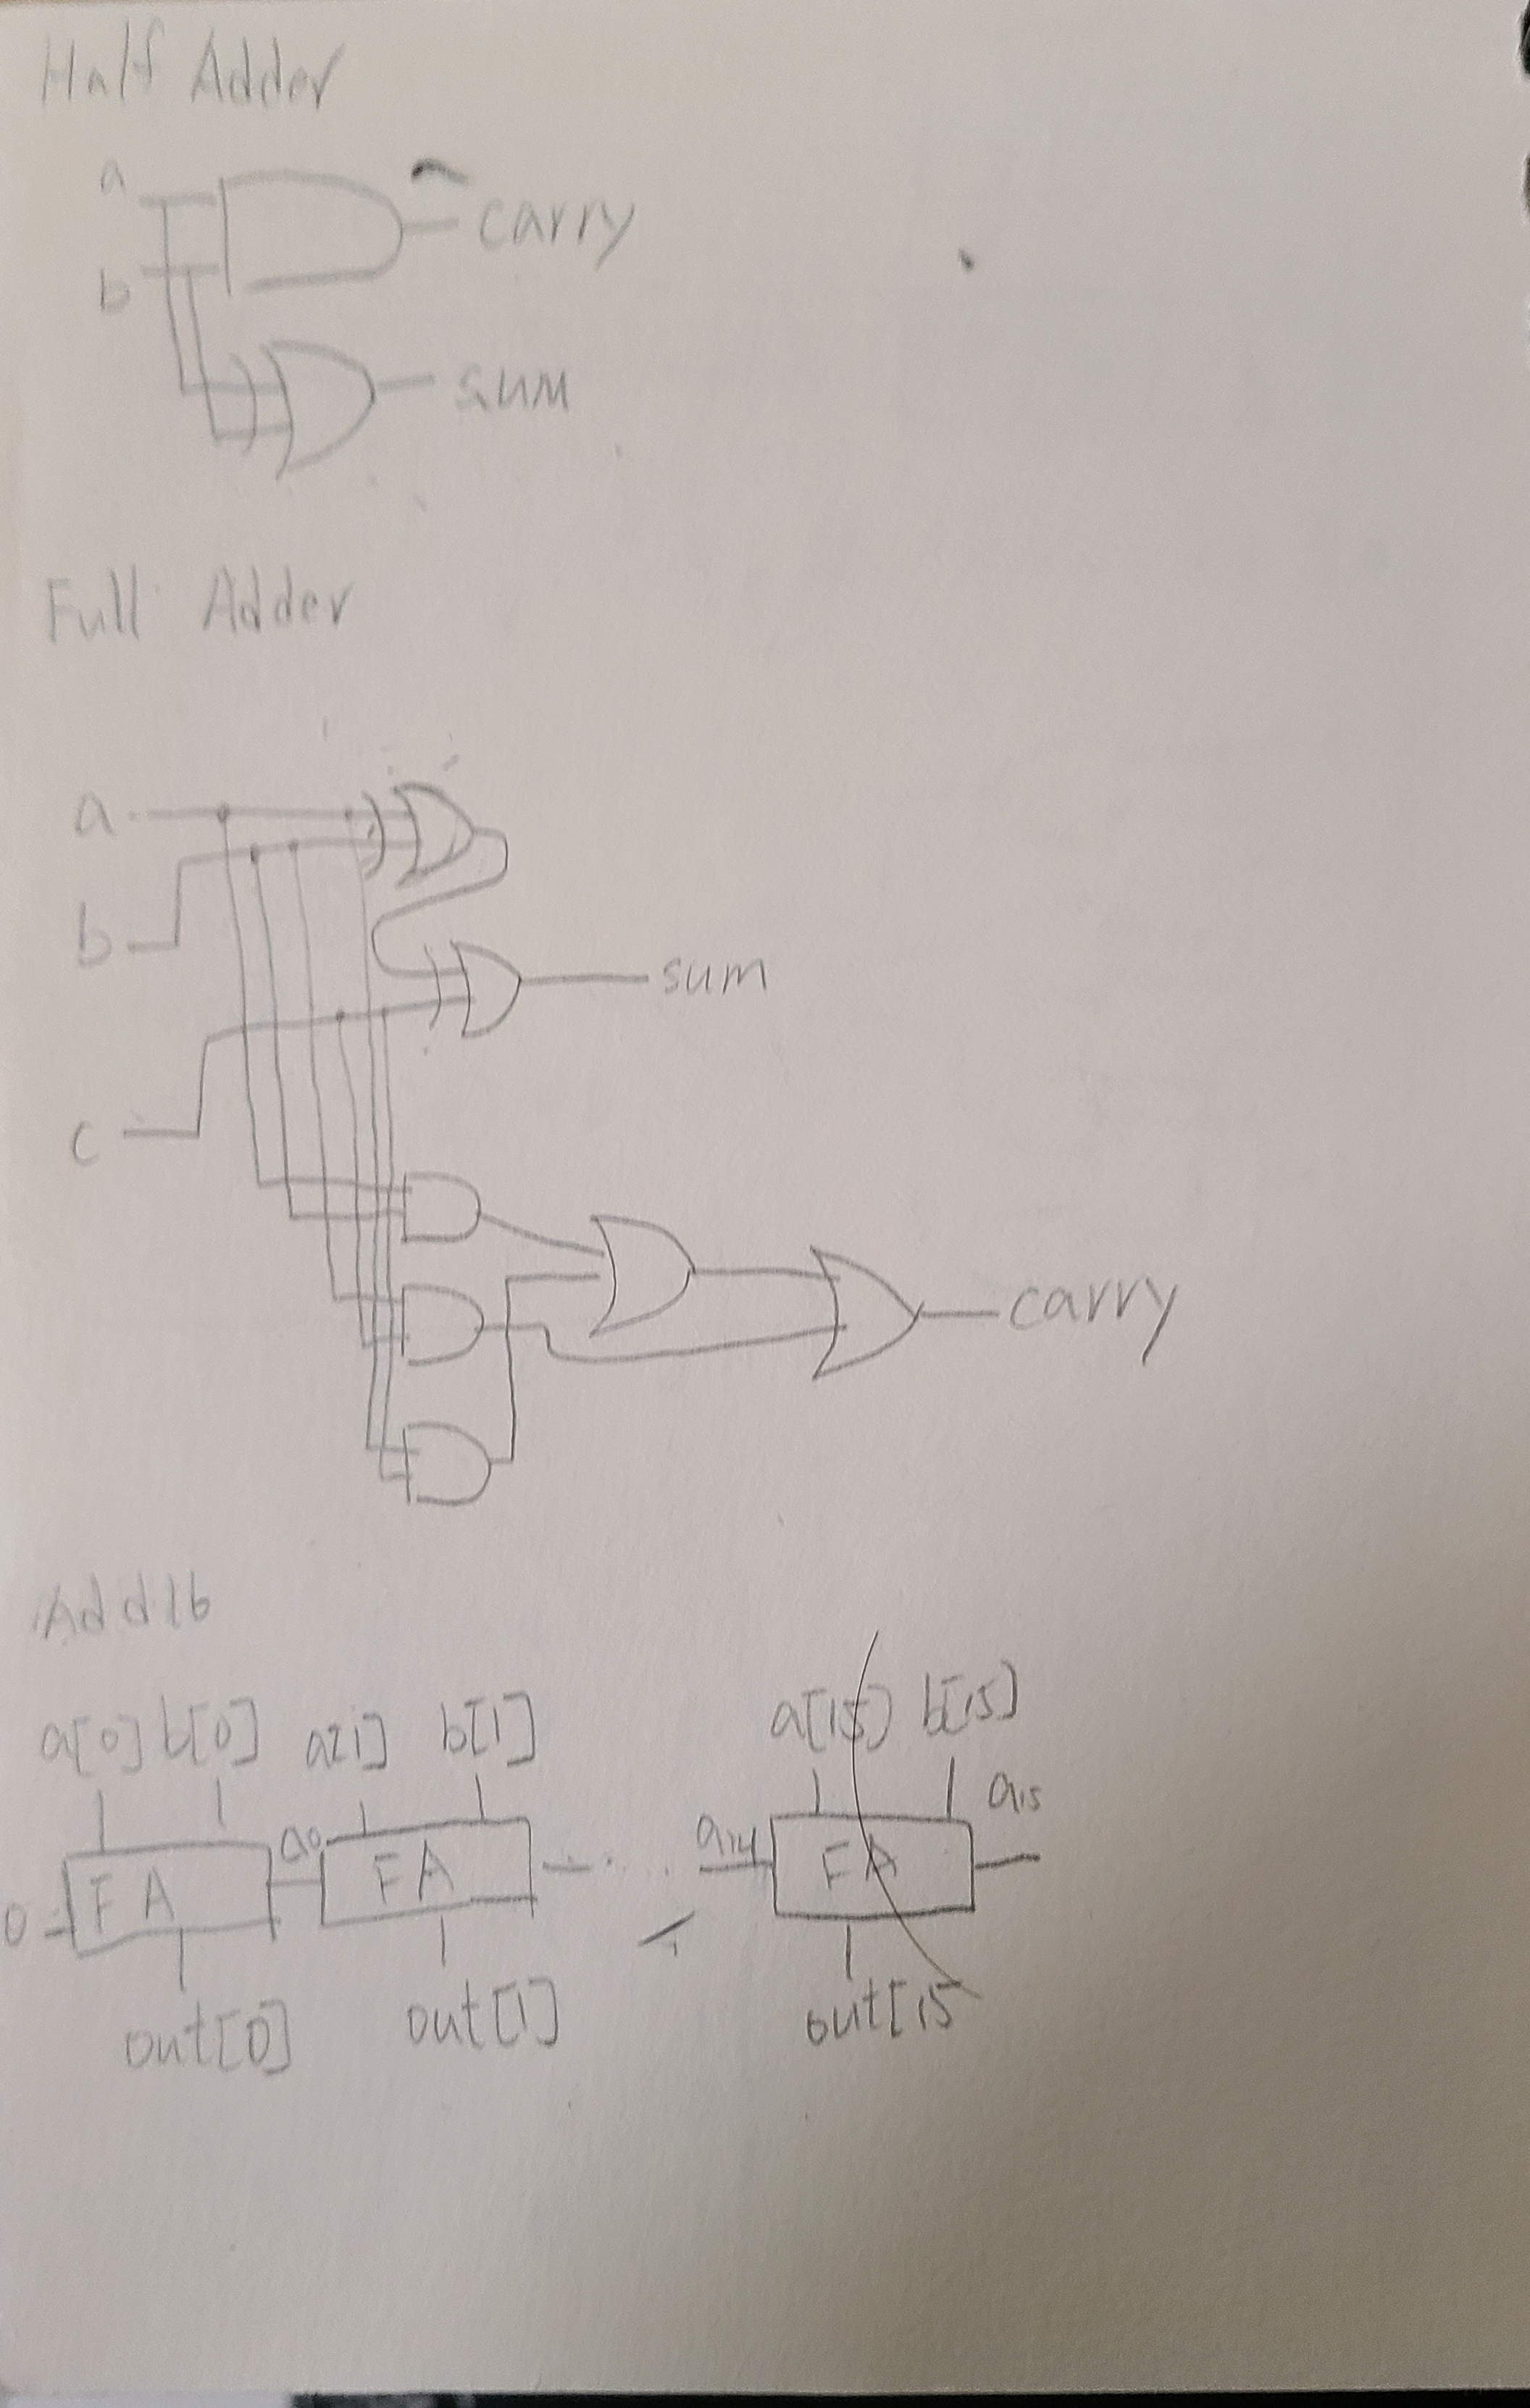 Half Adder
a
carry
b
sum
Full Adder
a
b
sum
c
carry
Add16
a[0] b[0] a[1] b[1] a[15] b[15]
a0 a14 a15
0 FA FA FA
out[0] out[1] out[15